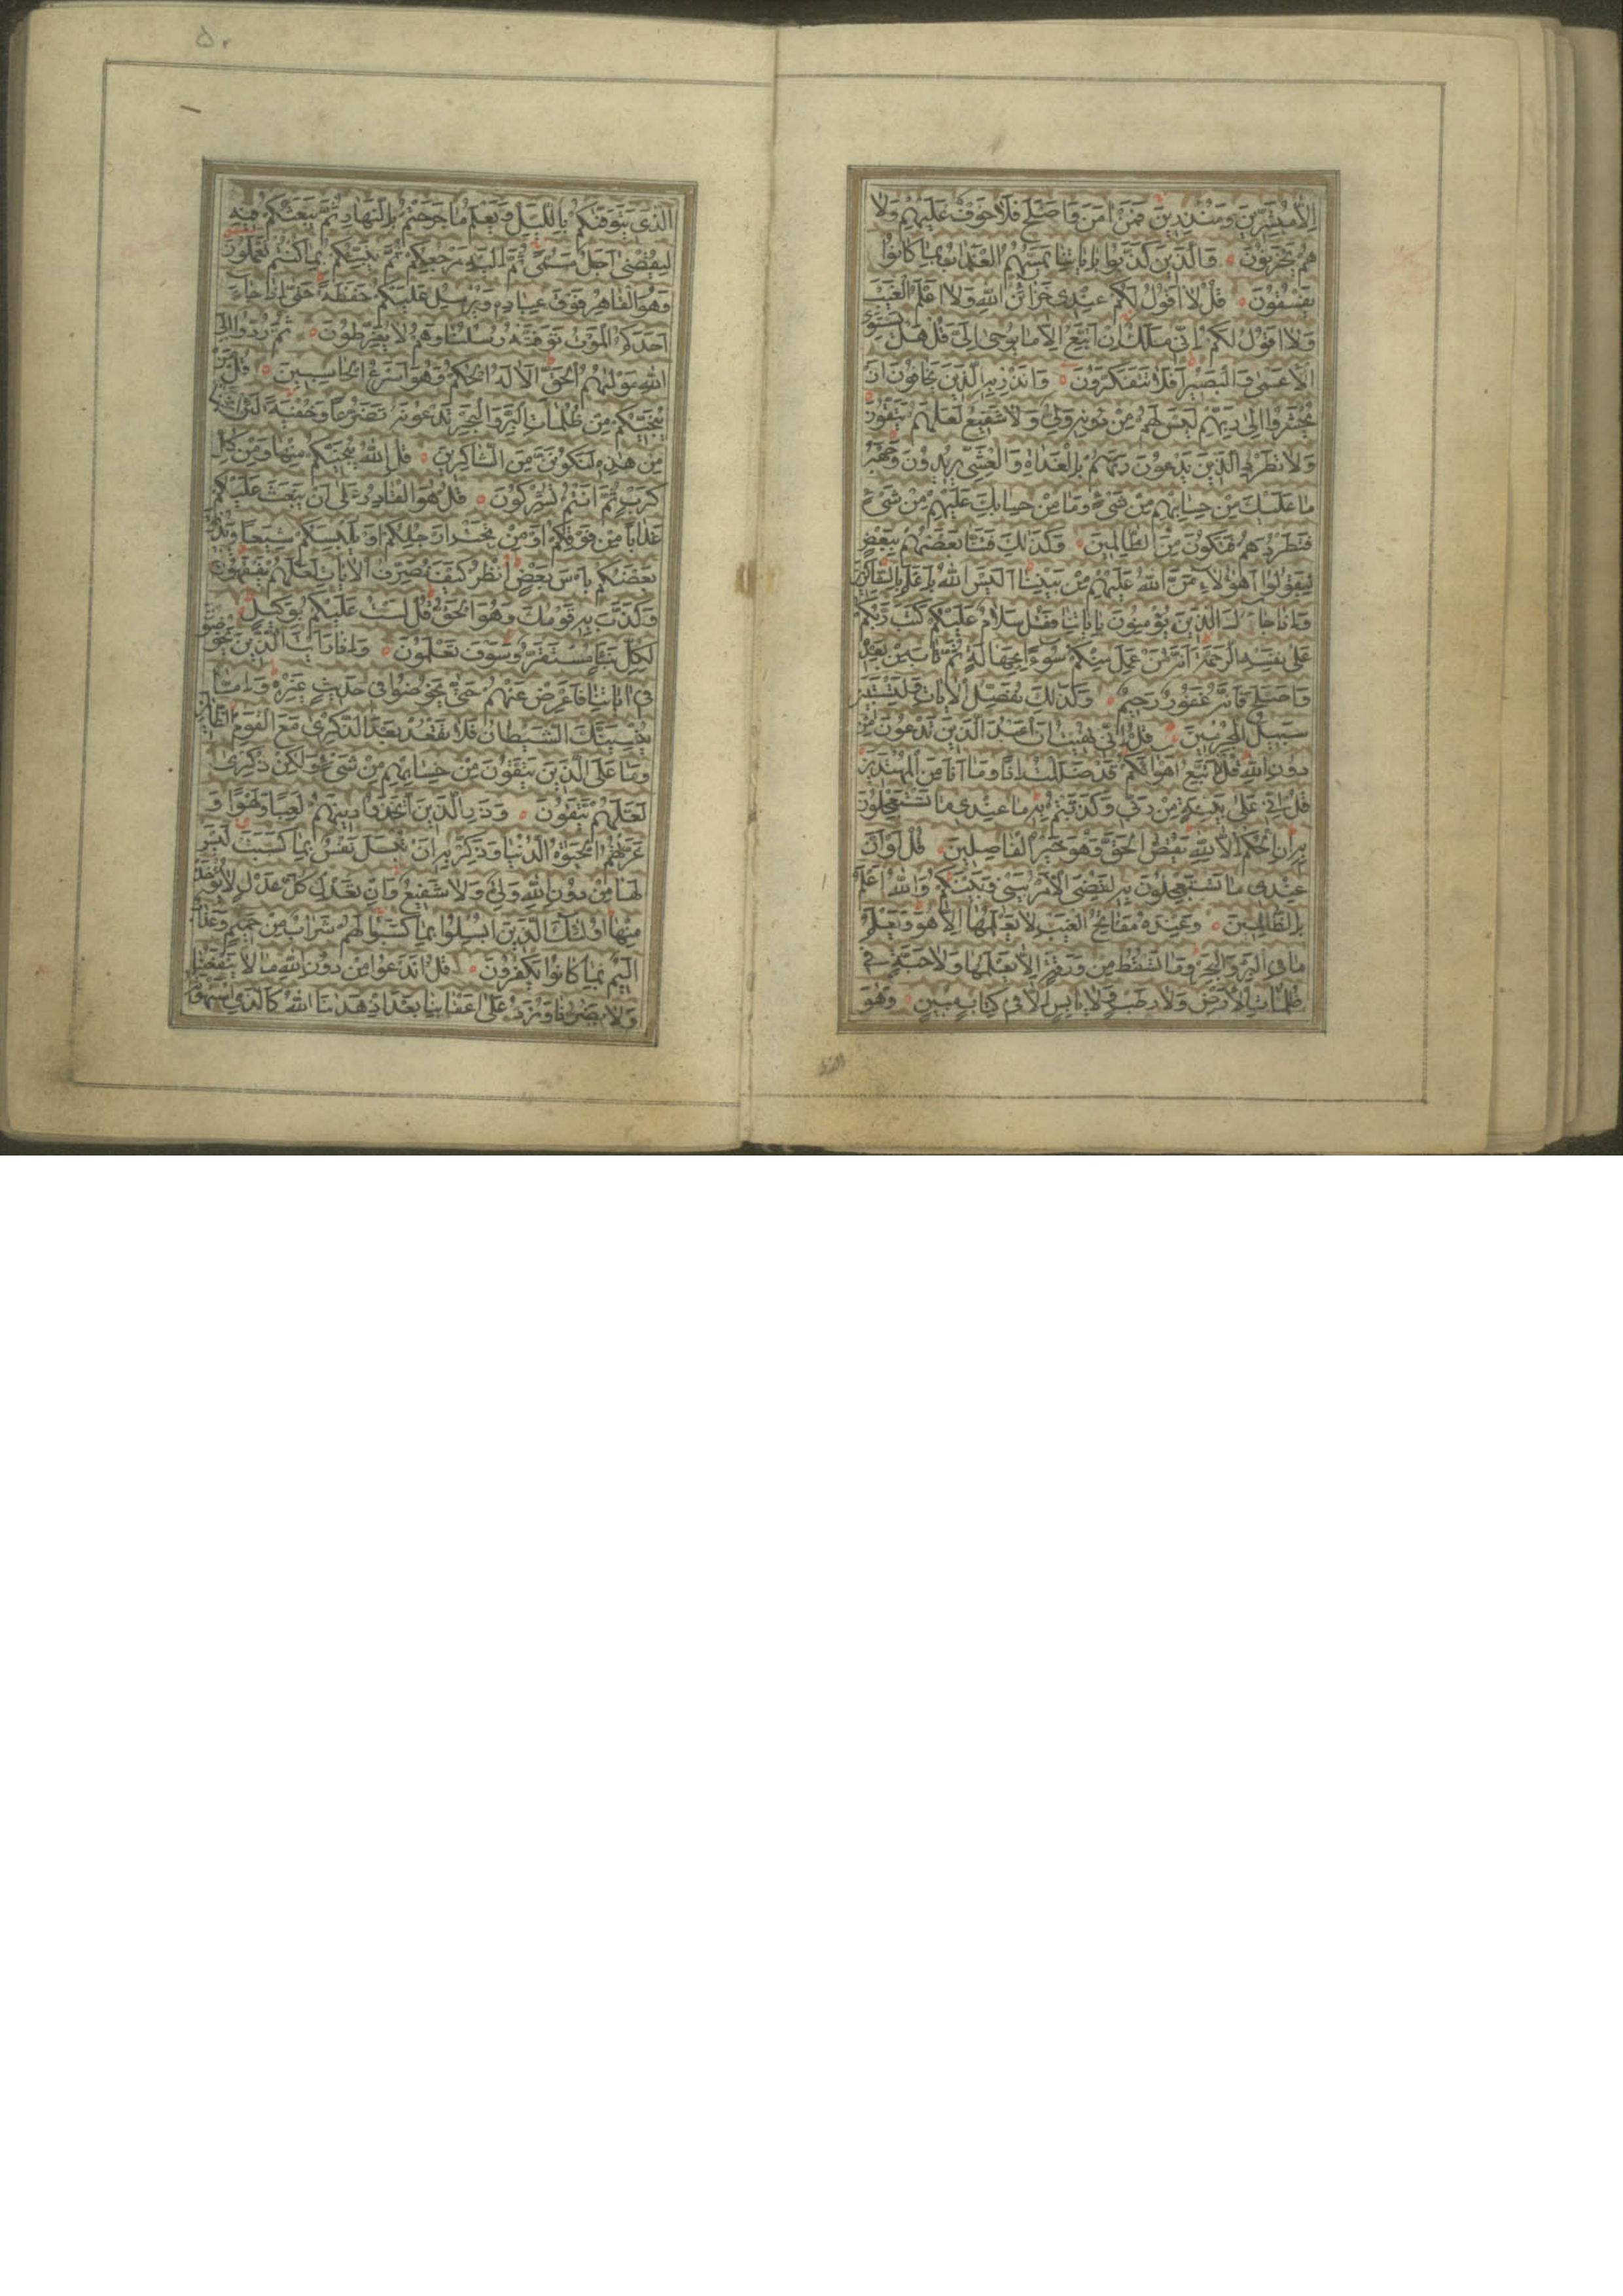 إِلَّا مُبَشِّرِينَ وَمُنْذِرِينَ فَمَنْ اٰمَنَ وَاَصْلَحَ فَلَا خَوْفٌ عَلَيْهِمْ وَلَا
هُمْ يَحْزَنُونَ وَالَّذِينَ كَذَّبُوا بِاٰيَاتِنَا يَمَسُّهُمُ الْعَذَابُ بِمَا كَانُوا
يَفْسُقُونَ قُلْ لَا اَقُولُ لَكُمْ عِنْدِي خَزَائِنُ اللّٰهِ وَلَا اَعْلَمُ الْغَيْبَ
وَلَا اَقُولُ لَكُمْ اِنِّي مَلَكٌ اِنْ اَتَّبِعُ اِلَّا مَا يُوحٰى اِلَيَّ قُلْ هَلْ يَسْتَوِي
الْاَعْمٰى وَالْبَصِيرُ اَفَلَا تَتَفَكَّرُونَ وَاَنْذِرْ بِهِ الَّذِينَ يَخَافُونَ اَنْ
يُحْشَرُوا اِلٰى رَبِّهِمْ لَيْسَ لَهُمْ مِنْ دُونِهِ وَلِيٌّ وَلَا شَفِيعٌ لَعَلَّهُمْ يَتَّقُونَ
وَلَا تَطْرُدِ الَّذِينَ يَدْعُونَ رَبَّهُمْ بِالْغَدَاةِ وَالْعَشِيِّ يُرِيدُونَ وَجْهَهُ
مَا عَلَيْكَ مِنْ حِسَابِهِمْ مِنْ شَيْءٍ وَمَا مِنْ حِسَابِكَ عَلَيْهِمْ مِنْ شَيْءٍ
فَتَطْرُدَهُمْ فَتَكُونَ مِنَ الظَّالِمِينَ وَكَذٰلِكَ فَتَنَّا بَعْضَهُمْ بِبَعْضٍ
لِيَقُولُوا اَهٰؤُلَاءِ مَنَّ اللّٰهُ عَلَيْهِمْ مِنْ بَيْنِنَا اَلَيْسَ اللّٰهُ بِاَعْلَمَ بِالشَّاكِرِينَ
وَاِذَا جَاءَكَ الَّذِينَ يُؤْمِنُونَ بِاٰيَاتِنَا فَقُلْ سَلَامٌ عَلَيْكُمْ كَتَبَ رَبُّكُمْ
عَلٰى نَفْسِهِ الرَّحْمَةَ اَنَّهُ مَنْ عَمِلَ مِنْكُمْ سُوءًا بِجَهَالَةٍ ثُمَّ تَابَ مِنْ بَعْدِهِ
وَاَصْلَحَ فَاَنَّهُ غَفُورٌ رَحِيمٌ وَكَذٰلِكَ نُفَصِّلُ الْاٰيَاتِ وَلِتَسْتَبِينَ
سَبِيلُ الْمُجْرِمِينَ قُلْ اِنِّي نُهِيتُ اَنْ اَعْبُدَ الَّذِينَ تَدْعُونَ مِنْ
دُونِ اللّٰهِ قُلْ لَا اَتَّبِعُ اَهْوَاءَكُمْ قَدْ ضَلَلْتُ اِذًا وَمَا اَنَا مِنَ الْمُهْتَدِينَ
قُلْ اِنِّي عَلٰى بَيِّنَةٍ مِنْ رَبِّي وَكَذَّبْتُمْ بِهِ مَا عِنْدِي مَا تَسْتَعْجِلُونَ
بِهِ اِنِ الْحُكْمُ اِلَّا لِلّٰهِ يَقُصُّ الْحَقَّ وَهُوَ خَيْرُ الْفَاصِلِينَ قُلْ لَوْ اَنَّ
عِنْدِي مَا تَسْتَعْجِلُونَ بِهِ لَقُضِيَ الْاَمْرُ بَيْنِي وَبَيْنَكُمْ وَاللّٰهُ اَعْلَمُ
بِالظَّالِمِينَ وَعِنْدَهُ مَفَاتِحُ الْغَيْبِ لَا يَعْلَمُهَا اِلَّا هُوَ وَيَعْلَمُ
مَا فِي الْبَرِّ وَالْبَحْرِ وَمَا تَسْقُطُ مِنْ وَرَقَةٍ اِلَّا يَعْلَمُهَا وَلَا حَبَّةٍ فِي
ظُلُمَاتِ الْاَرْضِ وَلَا رَطْبٍ وَلَا يَابِسٍ اِلَّا فِي كِتَابٍ مُبِينٍ وَهُوَ
الذى
۵۰
الَّذِي يَتَوَفّٰيكُمْ بِاللَّيْلِ وَيَعْلَمُ مَا جَرَحْتُمْ بِالنَّهَارِ ثُمَّ يَبْعَثُكُمْ فِيهِ
لِيُقْضٰى اَجَلٌ مُسَمًّى ثُمَّ اِلَيْهِ مَرْجِعُكُمْ ثُمَّ يُنَبِّئُكُمْ بِمَا كُنْتُمْ تَعْمَلُونَ
وَهُوَ الْقَاهِرُ فَوْقَ عِبَادِهِ وَيُرْسِلُ عَلَيْكُمْ حَفَظَةً حَتّٰى اِذَا جَاءَ
اَحَدَكُمُ الْمَوْتُ تَوَفَّتْهُ رُسُلُنَا وَهُمْ لَا يُفَرِّطُونَ ثُمَّ رُدُّوا اِلَى
اللّٰهِ مَوْلٰيهُمُ الْحَقِّ اَلَا لَهُ الْحُكْمُ وَهُوَ اَسْرَعُ الْحَاسِبِينَ قُلْ مَنْ
يُنَجِّيكُمْ مِنْ ظُلُمَاتِ الْبَرِّ وَالْبَحْرِ تَدْعُونَهُ تَضَرُّعًا وَخُفْيَةً لَئِنْ اَنْجٰينَا
مِنْ هٰذِهِ لَنَكُونَنَّ مِنَ الشَّاكِرِينَ قُلِ اللّٰهُ يُنَجِّيكُمْ مِنْهَا وَمِنْ كُلِّ
كَرْبٍ ثُمَّ اَنْتُمْ تُشْرِكُونَ قُلْ هُوَ الْقَادِرُ عَلٰى اَنْ يَبْعَثَ عَلَيْكُمْ
عَذَابًا مِنْ فَوْقِكُمْ اَوْ مِنْ تَحْتِ اَرْجُلِكُمْ اَوْ يَلْبِسَكُمْ شِيَعًا وَيُذِيقَ
بَعْضَكُمْ بَاْسَ بَعْضٍ اُنْظُرْ كَيْفَ نُصَرِّفُ الْاٰيَاتِ لَعَلَّهُمْ يَفْقَهُونَ
وَكَذَّبَ بِهِ قَوْمُكَ وَهُوَ الْحَقُّ قُلْ لَسْتُ عَلَيْكُمْ بِوَكِيلٍ
لِكُلِّ نَبَإٍ مُسْتَقَرٌّ وَسَوْفَ تَعْلَمُونَ وَاِذَا رَاَيْتَ الَّذِينَ يَخُوضُونَ
فِي اٰيَاتِنَا فَاَعْرِضْ عَنْهُمْ حَتّٰى يَخُوضُوا فِي حَدِيثٍ غَيْرِهِ وَاِمَّا
يُنْسِيَنَّكَ الشَّيْطَانُ فَلَا تَقْعُدْ بَعْدَ الذِّكْرٰى مَعَ الْقَوْمِ الظَّالِمِينَ
وَمَا عَلَى الَّذِينَ يَتَّقُونَ مِنْ حِسَابِهِمْ مِنْ شَيْءٍ وَلٰكِنْ ذِكْرٰى
لَعَلَّهُمْ يَتَّقُونَ وَذَرِ الَّذِينَ اتَّخَذُوا دِينَهُمْ لَعِبًا وَلَهْوًا وَ
غَرَّتْهُمُ الْحَيٰوةُ الدُّنْيَا وَذَكِّرْ بِهِ اَنْ تُبْسَلَ نَفْسٌ بِمَا كَسَبَتْ لَيْسَ
لَهَا مِنْ دُونِ اللّٰهِ وَلِيٌّ وَلَا شَفِيعٌ وَاِنْ تَعْدِلْ كُلَّ عَدْلٍ لَا يُؤْخَذْ
مِنْهَا اُولٰئِكَ الَّذِينَ اُبْسِلُوا بِمَا كَسَبُوا لَهُمْ شَرَابٌ مِنْ حَمِيمٍ وَعَذَابٌ
اَلِيمٌ بِمَا كَانُوا يَكْفُرُونَ قُلْ اَنَدْعُوا مِنْ دُونِ اللّٰهِ مَا لَا يَنْفَعُنَا
وَلَا يَضُرُّنَا وَنُرَدُّ عَلٰى اَعْقَابِنَا بَعْدَ اِذْ هَدٰينَا اللّٰهُ كَالَّذِي اسْتَهْوَتْهُ